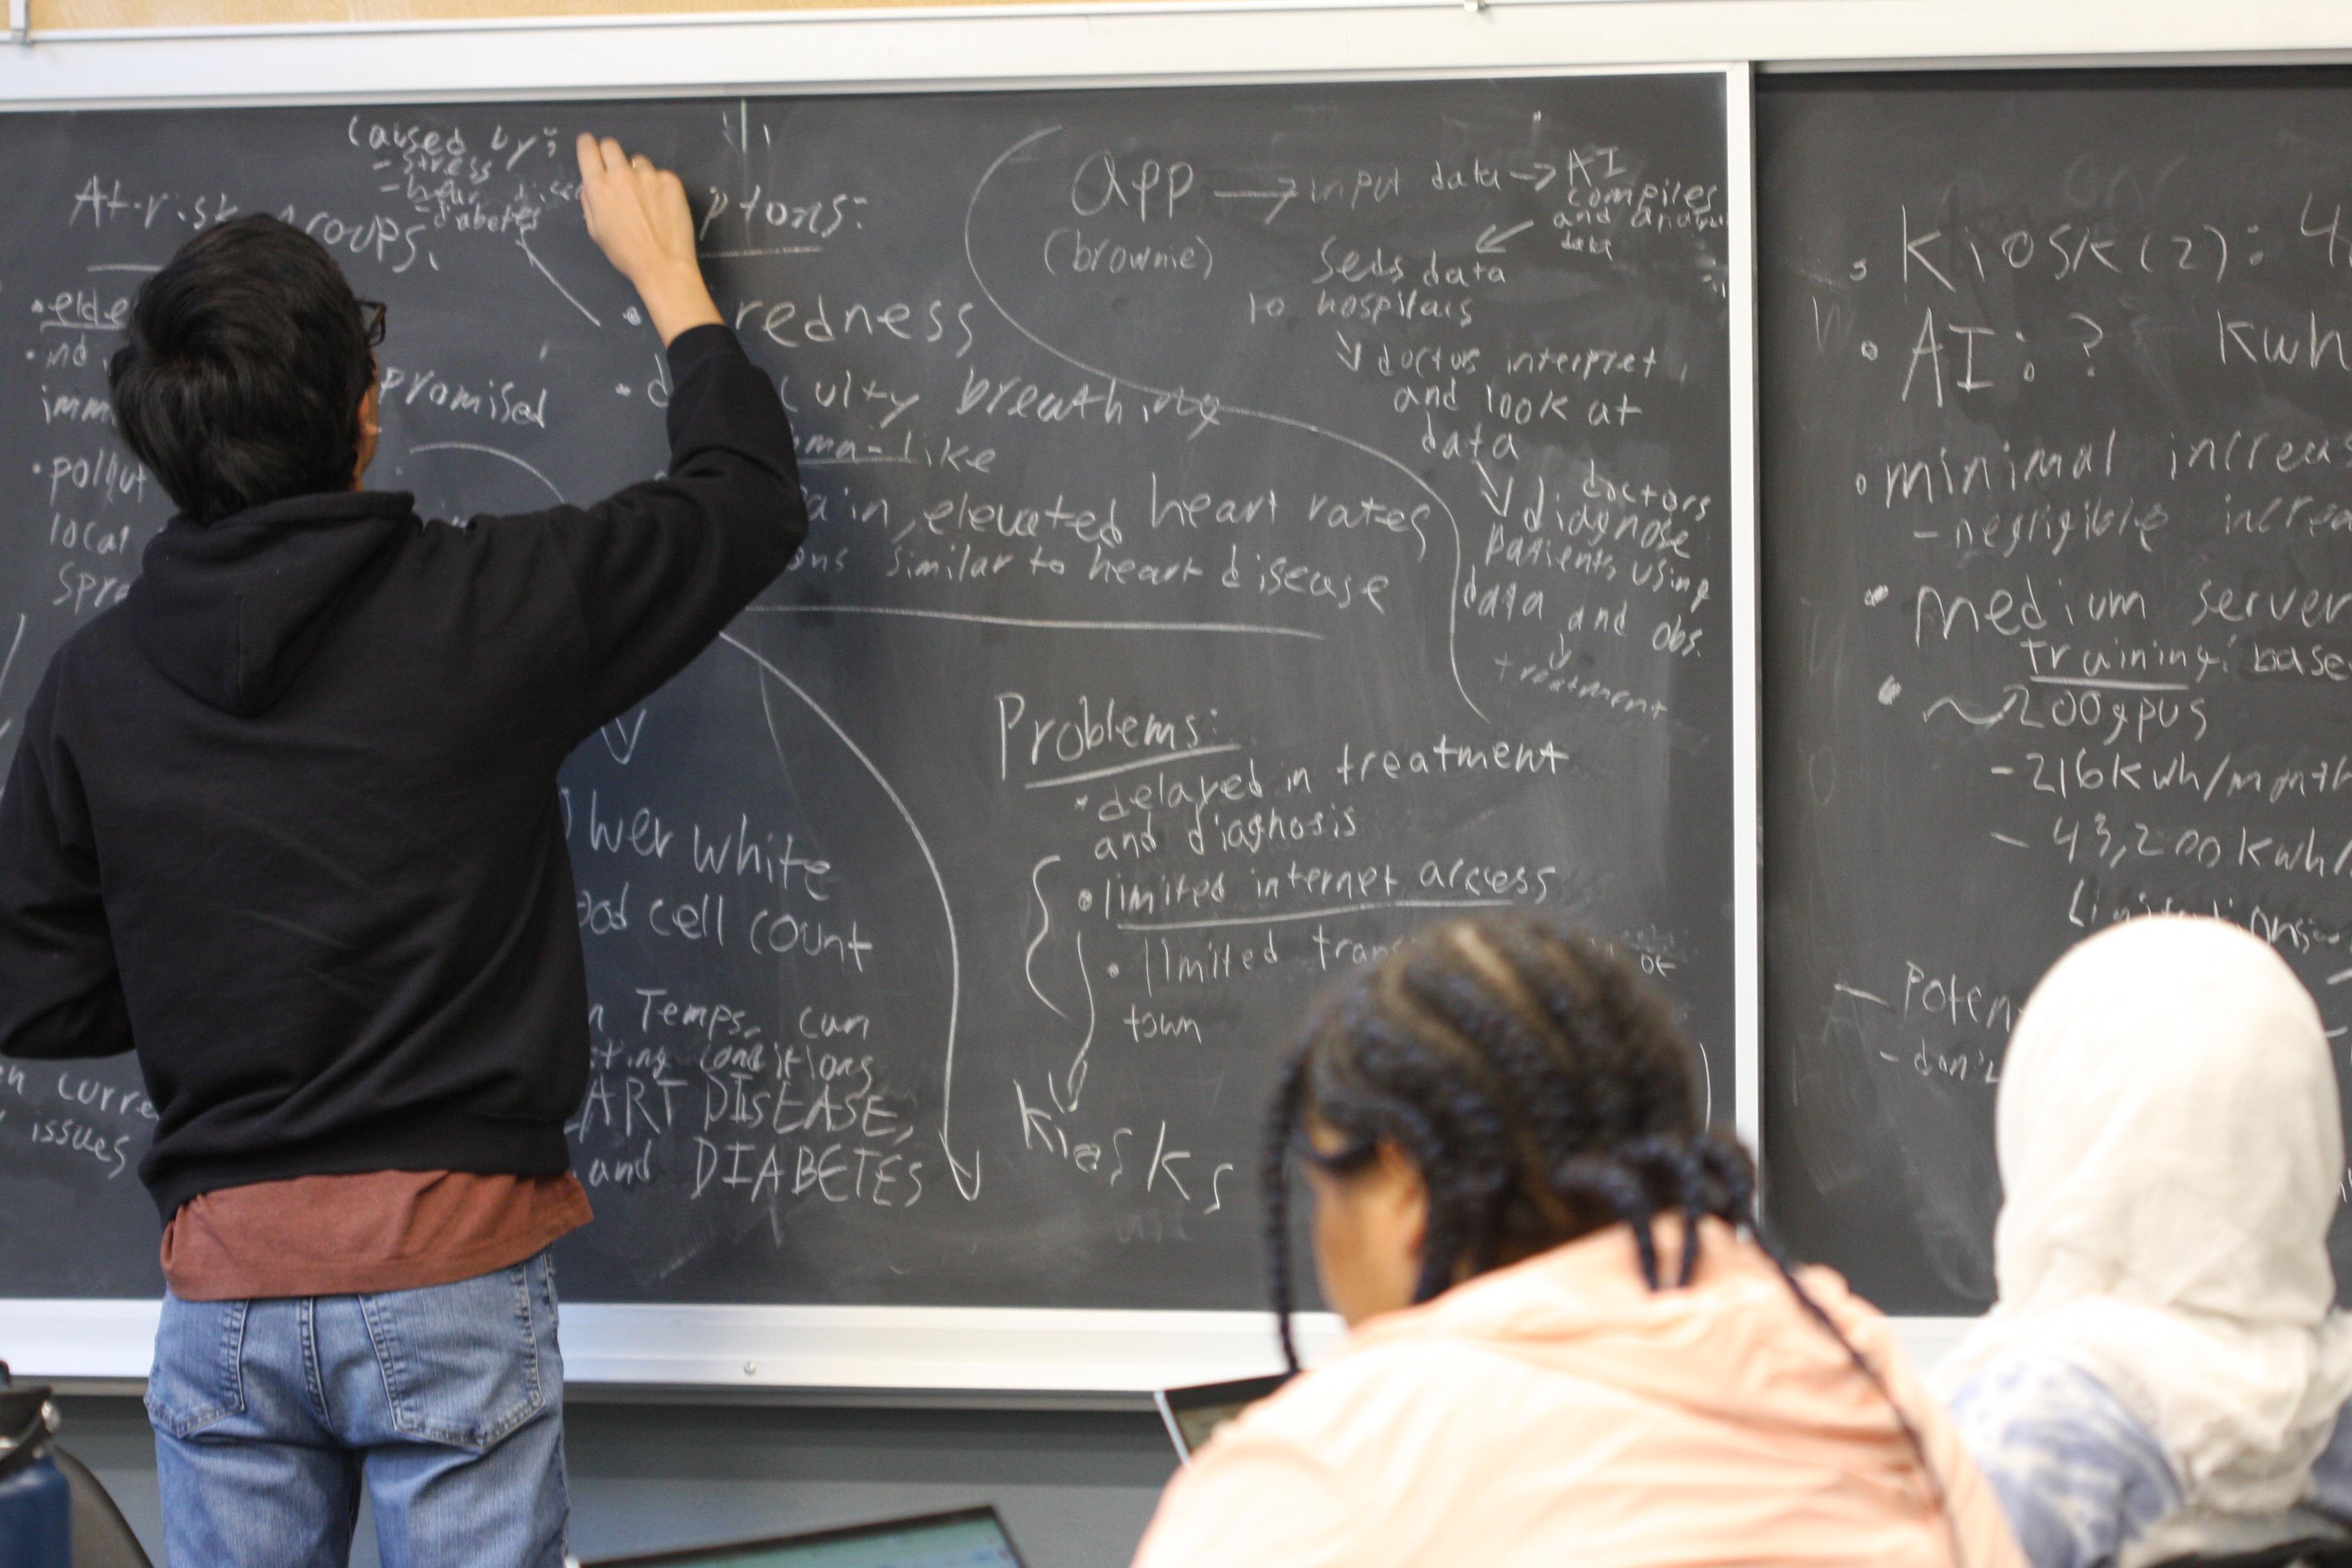 Caused by:
- stress
- diabetes
At-risk
• elde
immu
promised
• pollut
local
spre
ptons:
redness
culty breathing
ma-like
ain, elevated heart rates
ons similar to heart disease
wer white
ood cell count
n Temps. can
ting conditions
ART DISEASE,
and DIABETES
en curre
issues
app → input data → AI
compiles
and
data
(brownie)
Seds data
to hospitals
doctors interpret
and look at
data
doctors
diagnose
patients using
data and obs.
treatment
Problems:
• delayed in treatment
and diagnosis
• limited internet access
• limited tran
of
town
kiosks
Kiosk(2): 4
• AI: ? kwh
• minimal increas
- negligible increa
• medium server
training: base
• ~200gpus
- 216kwh/month
- 43,200kwh/
- Poten
- don't